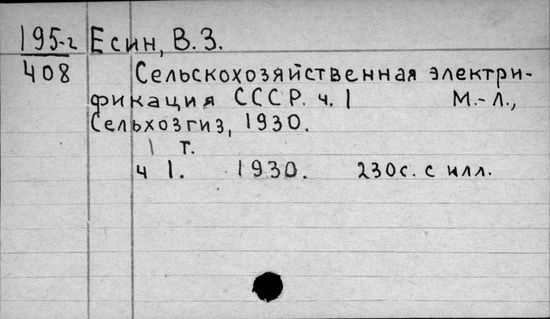 195-г Есин, В. З.
408 Сельскохозяйственная электри-
фикация СССР. ч. 1 М.-Л.,
Сельхозгиз, 1930.
1 т.
ч 1. 1930. 230с. с илл.